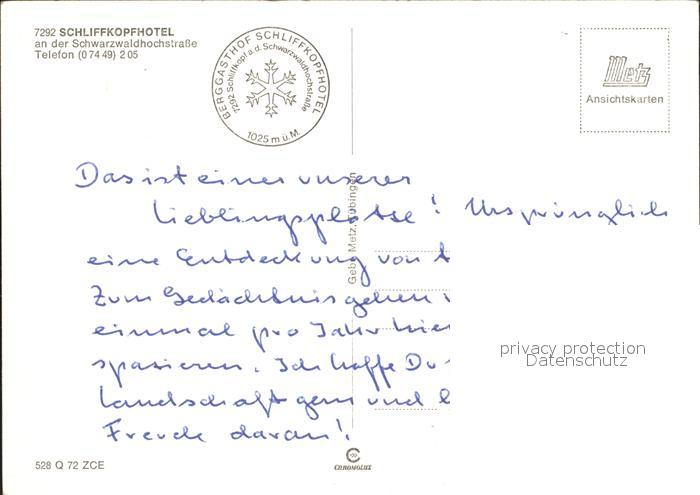 7292 SCHLIFFKOPFHOTEL
an der Schwarzwaldhochstraße
Telefon (0 74 49) 2 05
BERGGASTHOF SCHLIFFKOPFHOTEL
7292 Schliffkopf a.d. Schwarzwaldhochstraße
1025 m ü.M.
Metz
Ansichtskarten
Das ist einer unserer
Lieblingsplätze! Ursprünglich
eine Entdeckung von
Zum Gedächtnis gehen
einmal pro Jahr hier
spazieren. Ich hoffe Du
Landschaft gern und
Freude daran!
Gebr. Metz, Tübingen
privacy protection
Datenschutz
528 Q 72 ZCE
CHROMOLUX